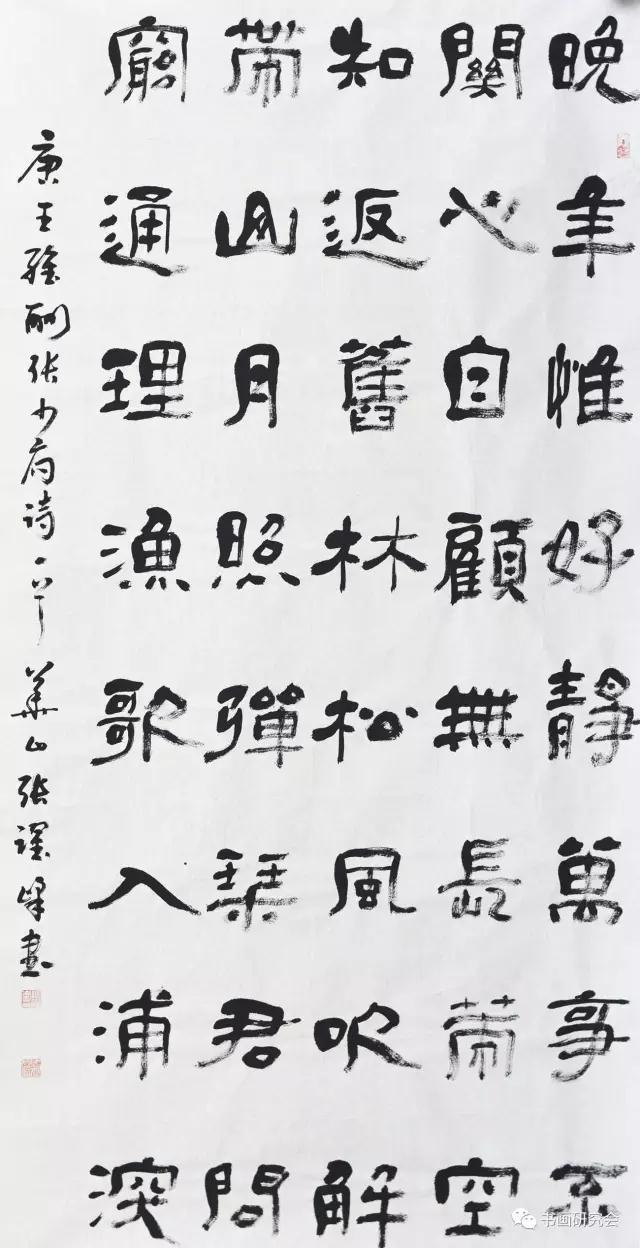 晚年惟好靜萬事不
關心自顧無長策空
知返舊林松風吹解
帶山月照彈琴君問
窮通理漁歌入浦深
唐王維酬张少府诗一首 華山张峰書
书画研究会